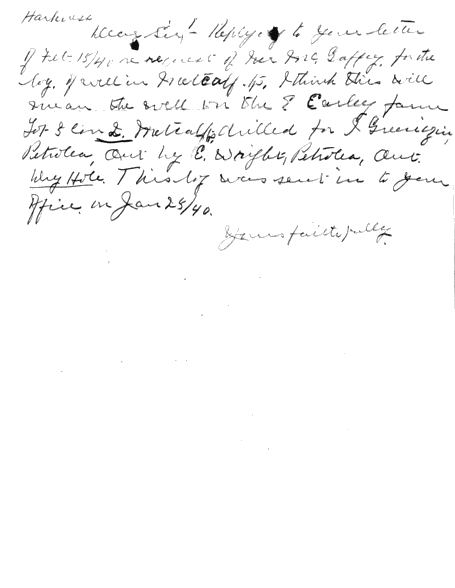 Harkness
Dear Sir! Replying to your letter
of Feb 15/40 re request of Mr Mc Gaffey, for the
log. of well in Metcalf. tp, I think this will
mean the well on the E Earley farm
Lot 3 Con 2. Metcalf tp, drilled for
Petrolea, Ont by C. Wright, Petrolea, Ont.
Dry Hole. This log was sent in to your
Office. on Jan 25/40.
Yours faithfully